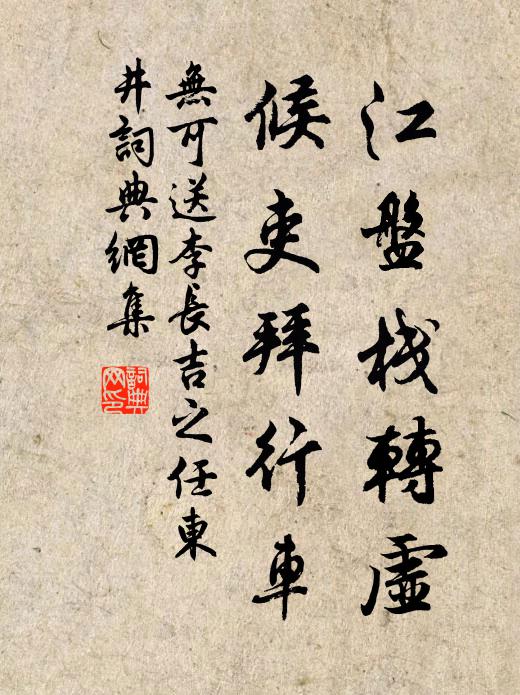 江盤棧轉虛
候吏拜行車
無可送李長吉之任東
井詞典網集
詞典網印